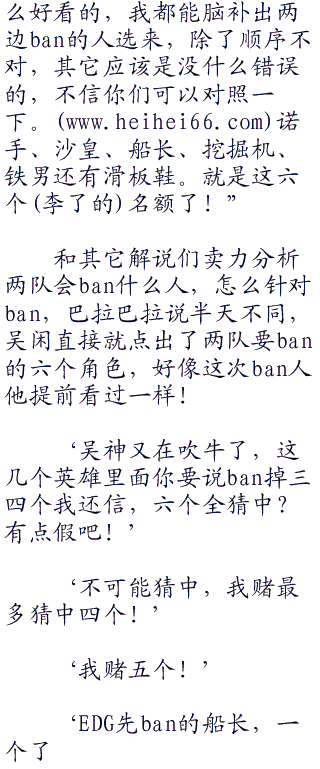 么好看的，我都能脑补出两
边ban的人选来，除了顺序不
对，其它应该是没什么错误
的，不信你们可以对照一
下。(www.heihei66.com)诺
手、沙皇、船长、挖掘机、
铁男还有滑板鞋。就是这六
个(李了的)名额了！”
和其它解说们卖力分析
两队会ban什么人，怎么针对
ban，巴拉巴拉说半天不同，
吴闲直接就点出了两队要ban
的六个角色，好像这次ban人
他提前看过一样！
‘吴神又在吹牛了，这
几个英雄里面你要说ban掉三
四个我还信，六个全猜中？
有点假吧！’
‘不可能猜中，我赌最
多猜中四个！’
‘我赌五个！’
‘EDG先ban的船长，一
个了